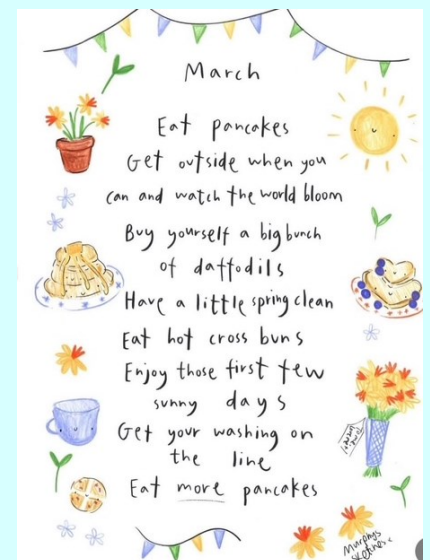 March
Eat pancakes
Get outside when you
can and watch the world bloom
Buy yourself a big bunch
of daffodils
Have a little spring clean
Eat hot cross buns
Enjoy those first few
sunny days
Get your washing on
the line
Eat more pancakes
Murphys
Sketches